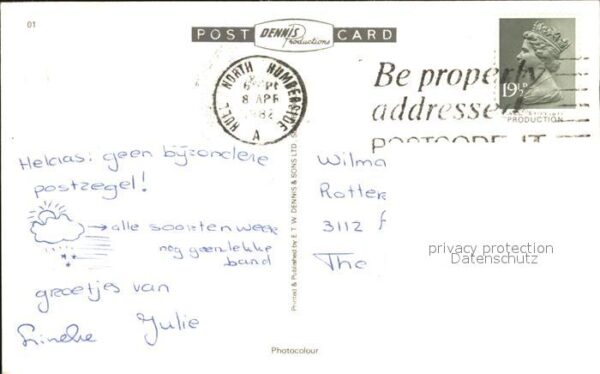 01
POST DENNIS Productions CARD
HULL NORTH HUMBERSIDE
8 APR
1982
A
Be properly
addressed
POSTCODE IT
19½P
PRODUCTION
Helaas: geen bijzondere
postzegel!
→ alle soorten weer
nog geen lekke
band
groetjes van
Lineke Julie
Printed & Published by E. T. W. DENNIS & SONS LTD.
Wilma
Rotter
3112
The
privacy protection
Datenschutz
Photocolour